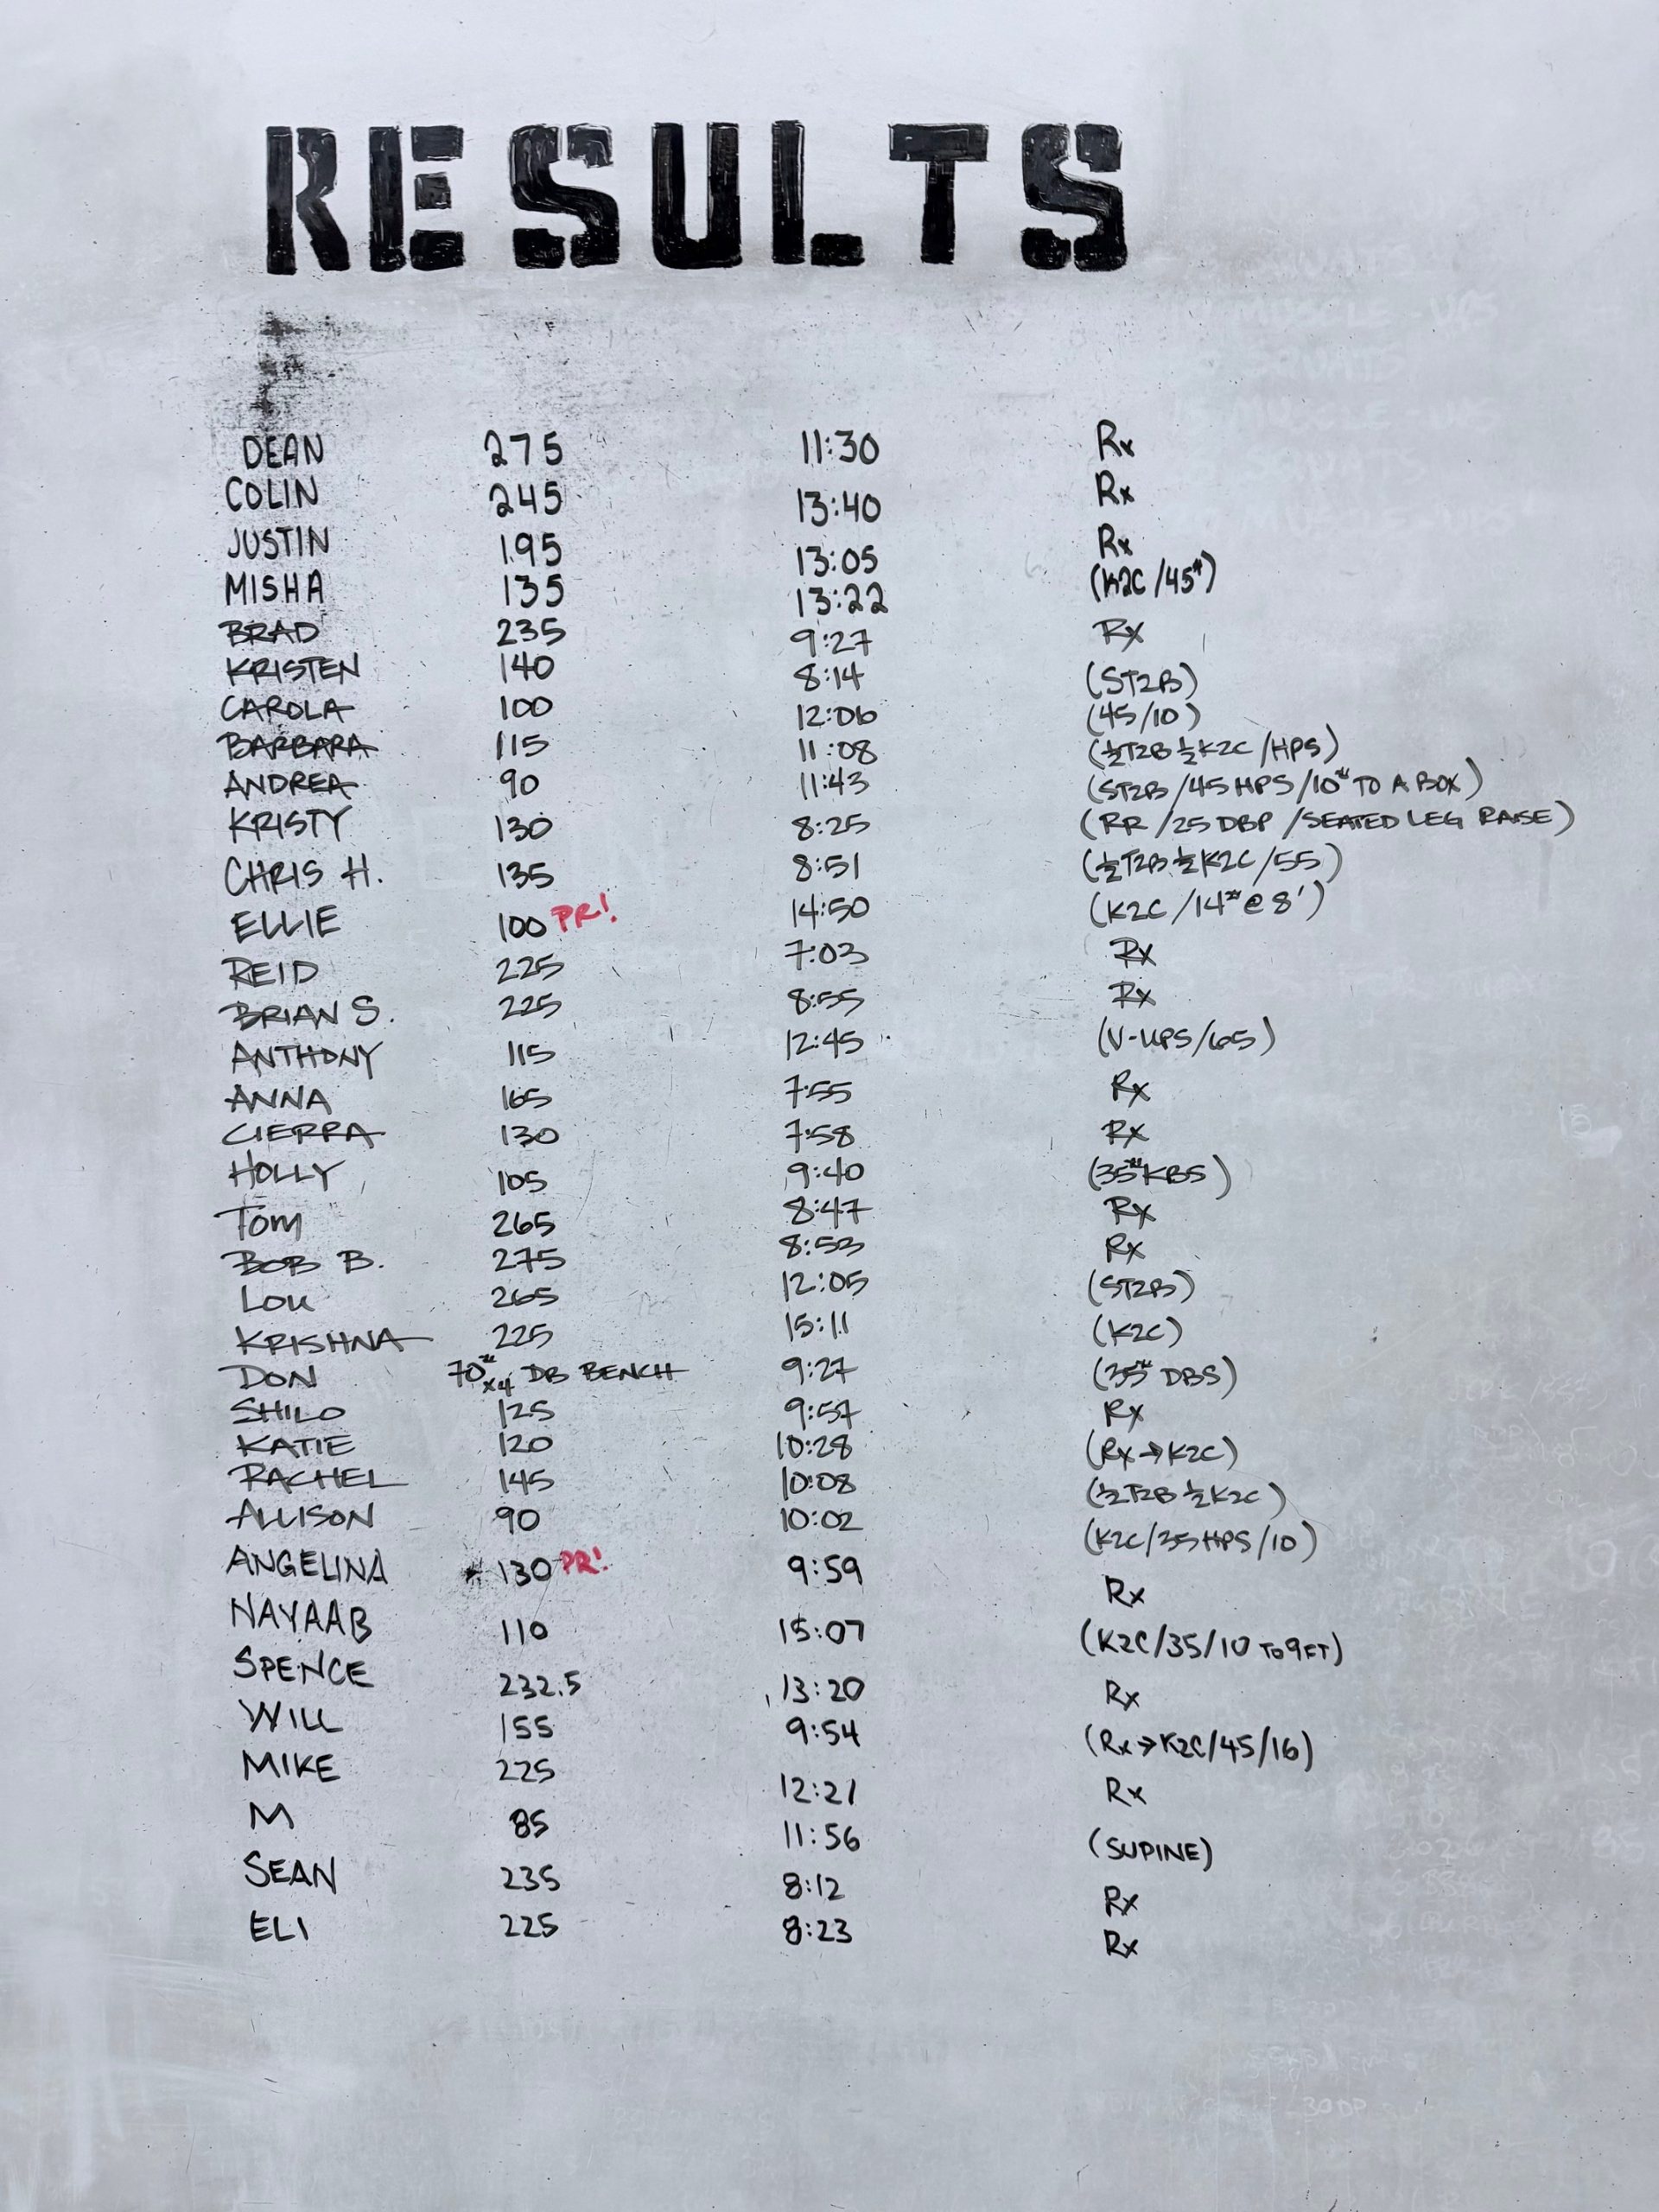 RESULTS
DEAN 275 11:30 Rx
COLIN 245 13:40 Rx
JUSTIN 195 13:05 Rx
MISHA 135 13:22 (K2C/45#)
BRAD 235 9:27 Rx
KRISTEN 140 8:14 (ST2B)
CAROLA 100 12:06 (45/10)
BARBARA 115 11:08 (½T2B ½K2C/HPS)
ANDREA 90 11:43 (ST2B/45 HPS/10# TO A BOX)
KRISTY 130 8:25 (RR/25 DBP/SEATED LEG RAISE)
CHRIS H. 135 8:51 (½T2B ½K2C/55)
ELLIE 100 PR! 14:50 (K2C/14#@8')
REID 225 7:03 Rx
BRIAN S. 225 8:55 Rx
ANTHONY 115 12:45 (V-UPS/65)
ANNA 165 7:55 Rx
CIERRA 130 7:58 Rx
HOLLY 105 9:40 (35# KBS)
TOM 265 8:47 Rx
BOB B. 275 8:53 Rx
LOU 265 12:05 (ST2B)
KRISHNA 225 15:11 (K2C)
DON 70# x4 DB BENCH 9:27 (35# DBS)
SHILO 125 9:57 Rx
KATIE 120 10:28 (Rx→K2C)
RACHEL 145 10:08 (½T2B ½K2C)
ALLISON 90 10:02 (K2C/35 HPS/10)
ANGELINA 130 PR! 9:59 Rx
NAYAAB 110 15:07 (K2C/35/10 TO 9FT)
SPENCE 232.5 13:20 Rx
WILL 155 9:54 (Rx→K2C/45/16)
MIKE 225 12:21 Rx
M 85 11:56 (SUPINE)
SEAN 235 8:12 Rx
ELI 225 8:23 Rx